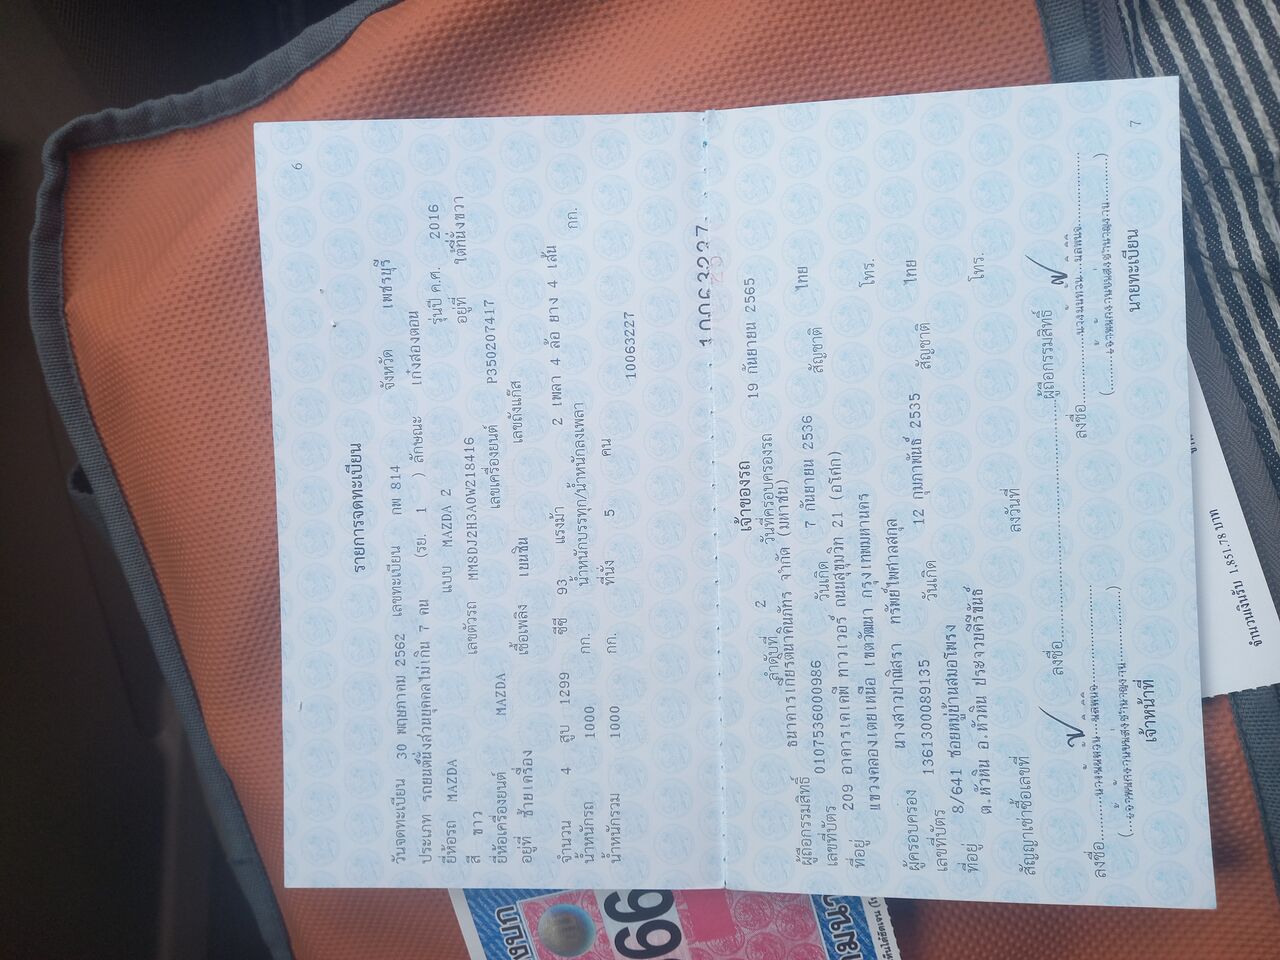 6
รายการจดทะเบียน
วันจดทะเบียน 30 พฤษภาคม 2562 เลขทะเบียน กพ 814 จังหวัด เพชรบุรี
ประเภท รถยนต์นั่งส่วนบุคคลไม่เกิน 7 คน (รย. 1 ) ลักษณะ เก๋งสองตอน
ยี่ห้อรถ MAZDA แบบ MAZDA 2 รุ่นปี ค.ศ. 2016
สี ขาว เลขตัวรถ MM8DJ2H3A0W218416 อยู่ที่ ใต้ที่นั่งขวา
ยี่ห้อเครื่องยนต์ MAZDA เลขเครื่องยนต์ P350207417
อยู่ที่ ซ้ายเครื่อง เชื้อเพลิง เบนซิน เลขถังแก๊ส
จำนวน 4 สูบ 1299 ซีซี 93 แรงม้า 2 เพลา 4 ล้อ ยาง 4 เส้น
น้ำหนักรถ 1000 กก. น้ำหนักบรรทุก/น้ำหนักลงเพลา กก.
น้ำหนักรวม 1000 กก. ที่นั่ง 5 คน
10063227
10063227
เจ้าของรถ
ลำดับที่ 2 วันที่ครอบครองรถ 19 กันยายน 2565
ผู้ถือกรรมสิทธิ์ ธนาคารเกียรตินาคินภัทร จำกัด (มหาชน)
เลขที่บัตร 0107536000986 วันเกิด 7 กันยายน 2536 สัญชาติ ไทย
ที่อยู่ 209 อาคารเคเคพี ทาวเวอร์ ถนนสุขุมวิท 21 (อโศก)
แขวงคลองเตยเหนือ เขตวัฒนา กรุงเทพมหานคร โทร.
ผู้ครอบครอง นางสาวปาณิสรา ทรัพย์ไพศาลสกุล
เลขที่บัตร 1361300089135 วันเกิด 12 กุมภาพันธ์ 2535 สัญชาติ ไทย
ที่อยู่ 8/641 ซอยหมู่บ้านสมอโพรง
ต.หัวหิน อ.หัวหิน ประจวบคีรีขันธ์ โทร.
สัญญาเช่าซื้อเลขที่ ลงวันที่
ลงชื่อ ผู้ถือกรรมสิทธิ์
ลงชื่อ ลงชื่อ
เจ้าหน้าที่ นายทะเบียน
7
จำนวนเงินรับ 1,851.78 บาท
66